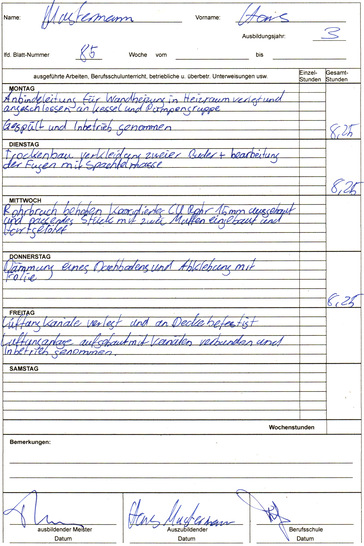 Name: Mustermann Vorname: Hans
Ausbildungsjahr: 3
lfd. Blatt-Nummer 85 Woche vom bis
ausgeführte Arbeiten, Berufsschulunterricht, betriebliche u. überbetr. Unterweisungen usw. Einzel-Stunden Gesamt-Stunden
MONTAG
Anbindeleitung für Wandheizung in Heizraum verlegt und
angeschlossen an Kessel und Pumpengruppe
Gespült und Inbetrieb genommen 8,25
DIENSTAG
Trockenbau verkleidung zweier Bäder + bearbeitung
der Fugen mit Spachtelmasse
8,25
MITTWOCH
Rohrbruch behoben Korodiertes CU Rohr 15mm ausgebaut
und passendes Stück mit zwei Muffen eingebaut und
DONNERSTAG
Dämmung eines Dachbodens und Abklebung mit
Folie
8,25
FREITAG
Lüftungskanäle verlegt und an Decke befestigt
Lüftungsanlage aufgebaut mit Kanälen verbunden und
Inbetrieb genommen.
SAMSTAG
Wochenstunden
Bemerkungen:
Hans Mustermann
ausbildender Meister Auszubildender Berufsschule
Datum Datum Datum